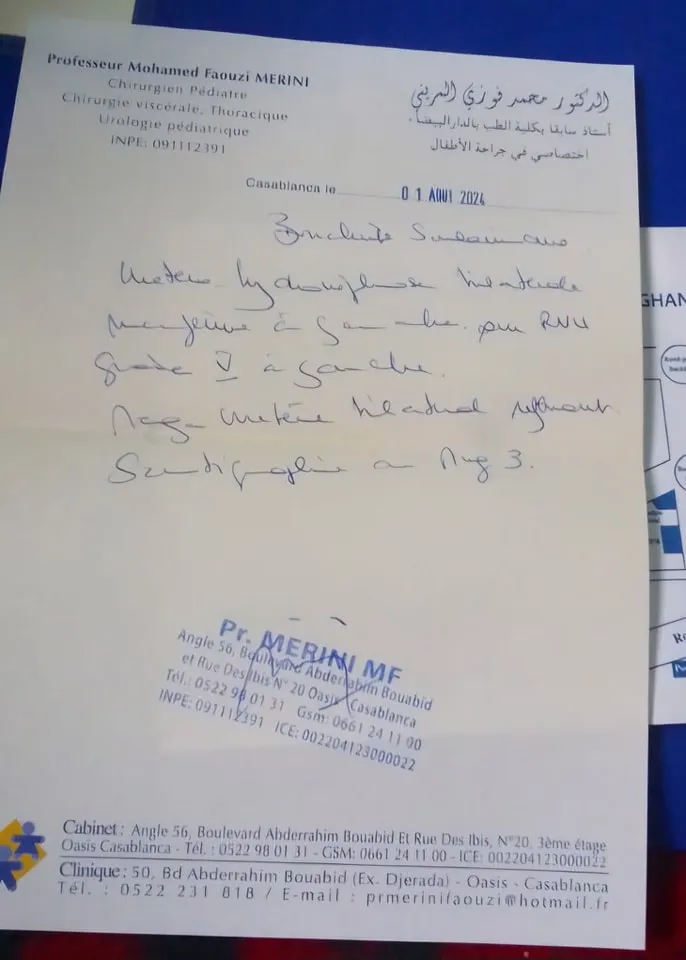 Professeur Mohamed Faouzi MERINI
Chirurgien Pédiatre
Chirurgie viscérale, Thoracique
Urologie pédiatrique
INPE: 091112391
الدكتور محمد فوزي المريني
أستاذ سابقا بكلية الطب بالدار البيضاء
اختصاصي في جراحة الأطفال
Casablanca le 01 AOUT 2024
hydronéphrose bilatérale
majeure à gauche. RVU
grade V à gauche.
Mega uretère bilatéral refluant
Scintigraphie au Mag 3.
Pr. MERINI MF
Angle 56, Boulevard Abderrahim Bouabid
et Rue Des Ibis N° 20 Oasis - Casablanca
Tél.: 0522 98 01 31 Gsm: 0661 24 11 00
INPE: 091112391 ICE: 002204123000022
Cabinet : Angle 56, Boulevard Abderrahim Bouabid Et Rue Des Ibis, N°20. 3ème étage
Oasis Casablanca - Tél. : 0522 98 01 31 - GSM: 0661 24 11 00 - ICE: 002204123000022
Clinique : 50, Bd Abderrahim Bouabid (Ex. Djerada) - Oasis - Casablanca
Tél. : 0522 231 818 / E-mail : prmerinifaouzi@hotmail.fr